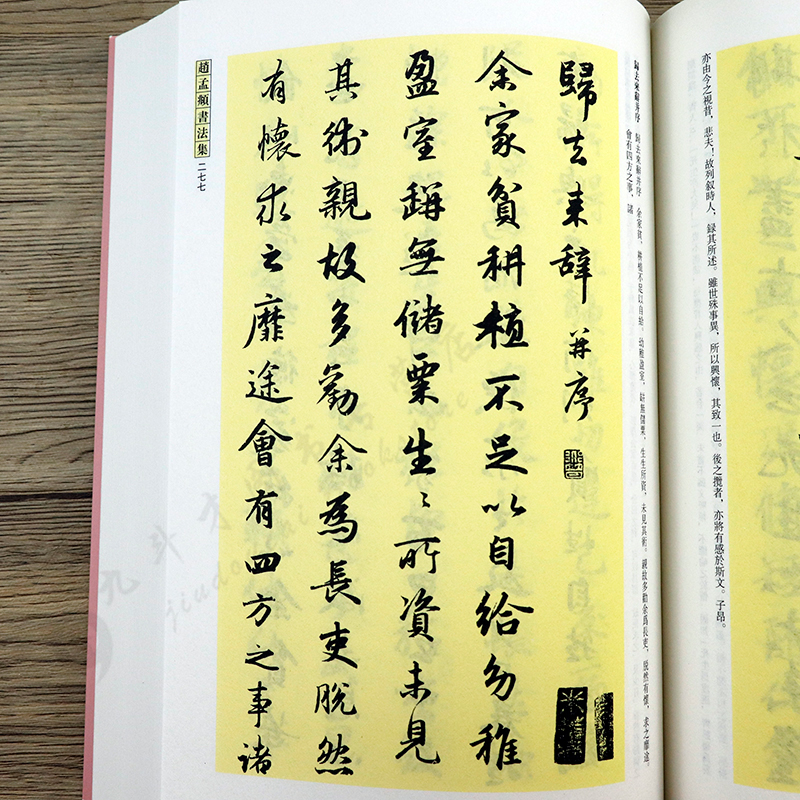 亦由今之視昔，悲夫！故列叙時人，録其所述。雖世殊事異，所以興懷，其致一也。後之攬者，亦將有感於斯文。子昂。
歸去來辭并序　歸去來辭并序　余家貧，耕植不足以自給。幼稚盈室，缾無儲粟，生生所資，未見其術。親故多勸余爲長吏，脱然有懷，求之靡途。
會有四方之事，諸
歸去来辞并序
余家貧耕植不足以自給幼稚
盈室缾無儲粟生〻所資未見
其術親故多勸余為長吏脫然
有懷求之靡途會有四方之事諸
趙孟頫書法集 二七七